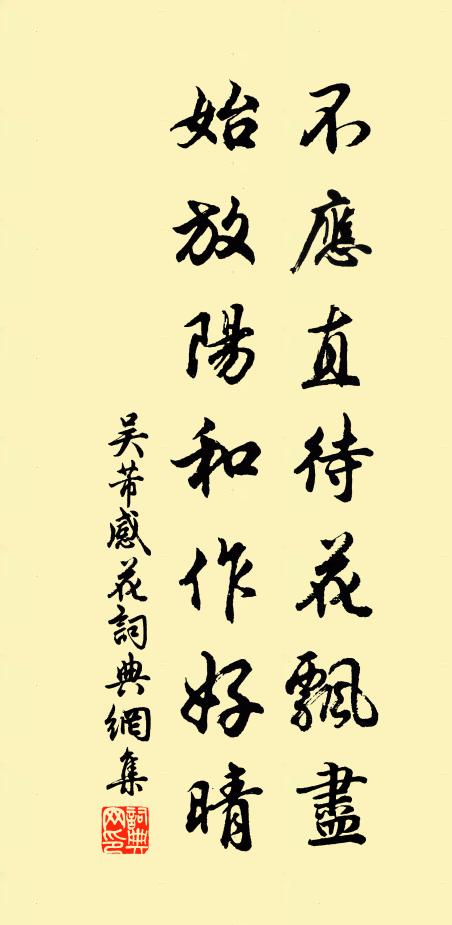 不應直待花飄盡
始放陽和作好晴
吴芾感花詞典網集
詞典網印